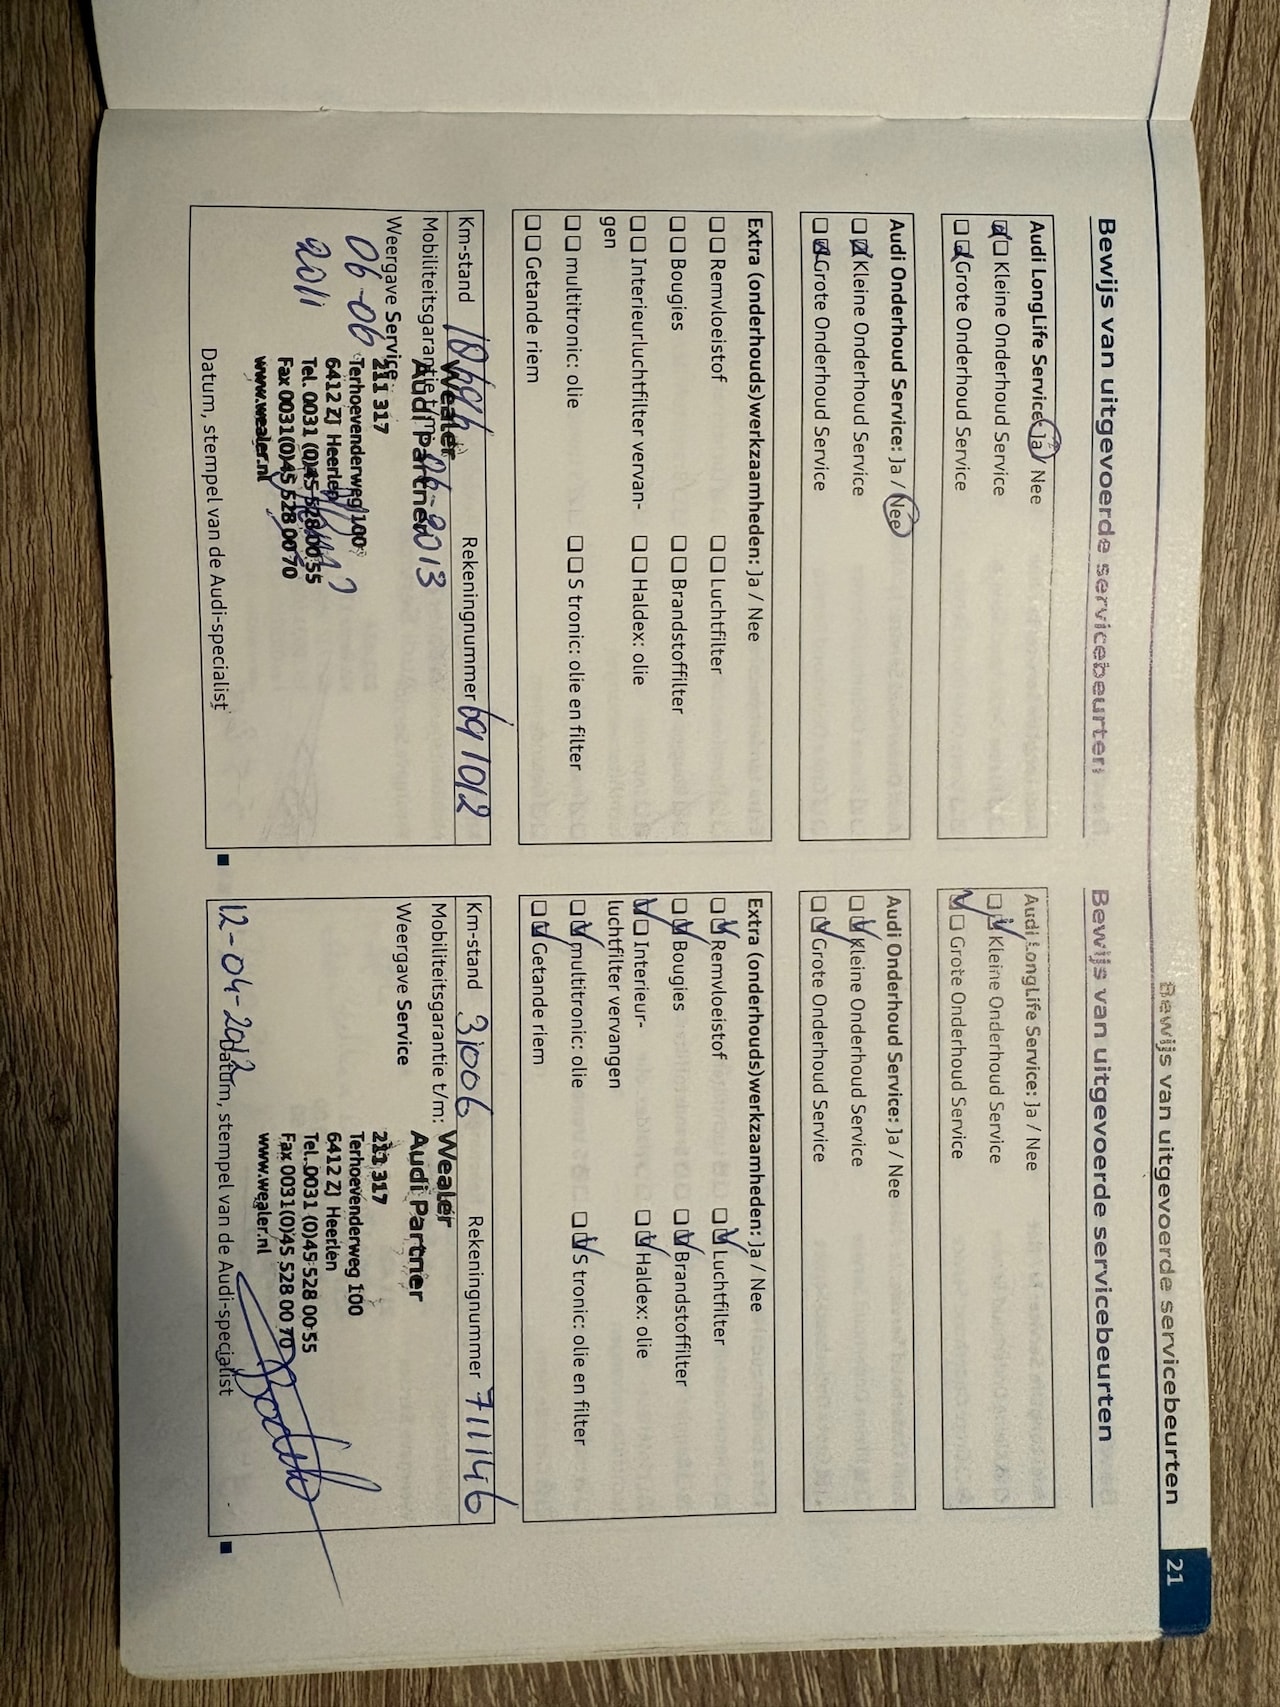 Bewijs van uitgevoerde servicebeurten
21
Bewijs van uitgevoerde servicebeurten
Audi LongLife Service: Ja / Nee
Kleine Onderhoud Service
Grote Onderhoud Service
Audi Onderhoud Service: Ja / Nee
Kleine Onderhoud Service
Grote Onderhoud Service
Extra (onderhouds)werkzaamheden: Ja / Nee
Remvloeistof
Luchtfilter
Bougies
Brandstoffilter
Interieurluchtfilter vervan-
gen
Haldex: olie
multitronic: olie
S tronic: olie en filter
Getande riem
Km-stand
Rekeningnummer 691012
Mobiliteitsgarantie t/m: 06-2013
Weergave Service
06-06
2011
Wealer
Audi Partner
211 317
Terhoevenderweg 100
6412 ZJ Heerlen
Tel. 0031 (0)45 528 00 55
Fax 0031(0)45 528 00 70
www.wealer.nl
Datum, stempel van de Audi-specialist
Bewijs van uitgevoerde servicebeurten
Audi LongLife Service: Ja / Nee
Kleine Onderhoud Service
Grote Onderhoud Service
Audi Onderhoud Service: Ja / Nee
Kleine Onderhoud Service
Grote Onderhoud Service
Extra (onderhouds)werkzaamheden: Ja / Nee
Remvloeistof
Luchtfilter
Bougies
Brandstoffilter
Interieur-
luchtfilter vervangen
Haldex: olie
multitronic: olie
S tronic: olie en filter
Getande riem
Km-stand 31006
Rekeningnummer 711146
Mobiliteitsgarantie t/m:
Weergave Service
Wealer
Audi Partner
211 317
Terhoevenderweg 100
6412 ZJ Heerlen
Tel. 0031 (0)45 528 00 55
Fax 0031(0)45 528 00 70
www.wealer.nl
12-04-2012
Datum, stempel van de Audi-specialist